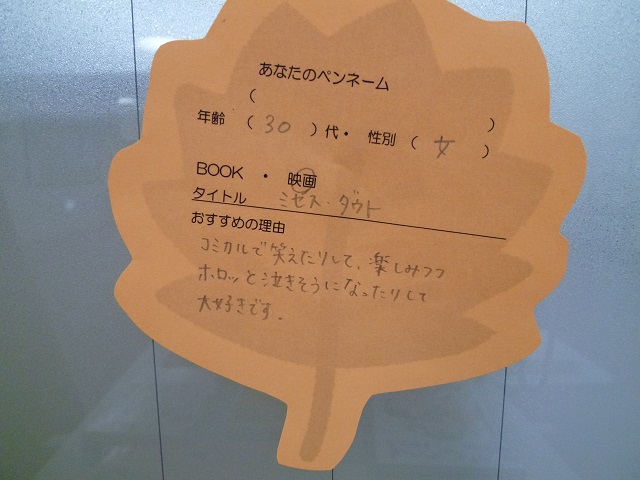 あなたのペンネーム
(　　　　　　　　　　)
年齢 (30)代・ 性別 (女)
BOOK ・ 映画
タイトル ミセス・ダウト
おすすめの理由
コミカルで笑えたりして、楽しみつつ
ホロッと泣きそうになったりして
大好きです.